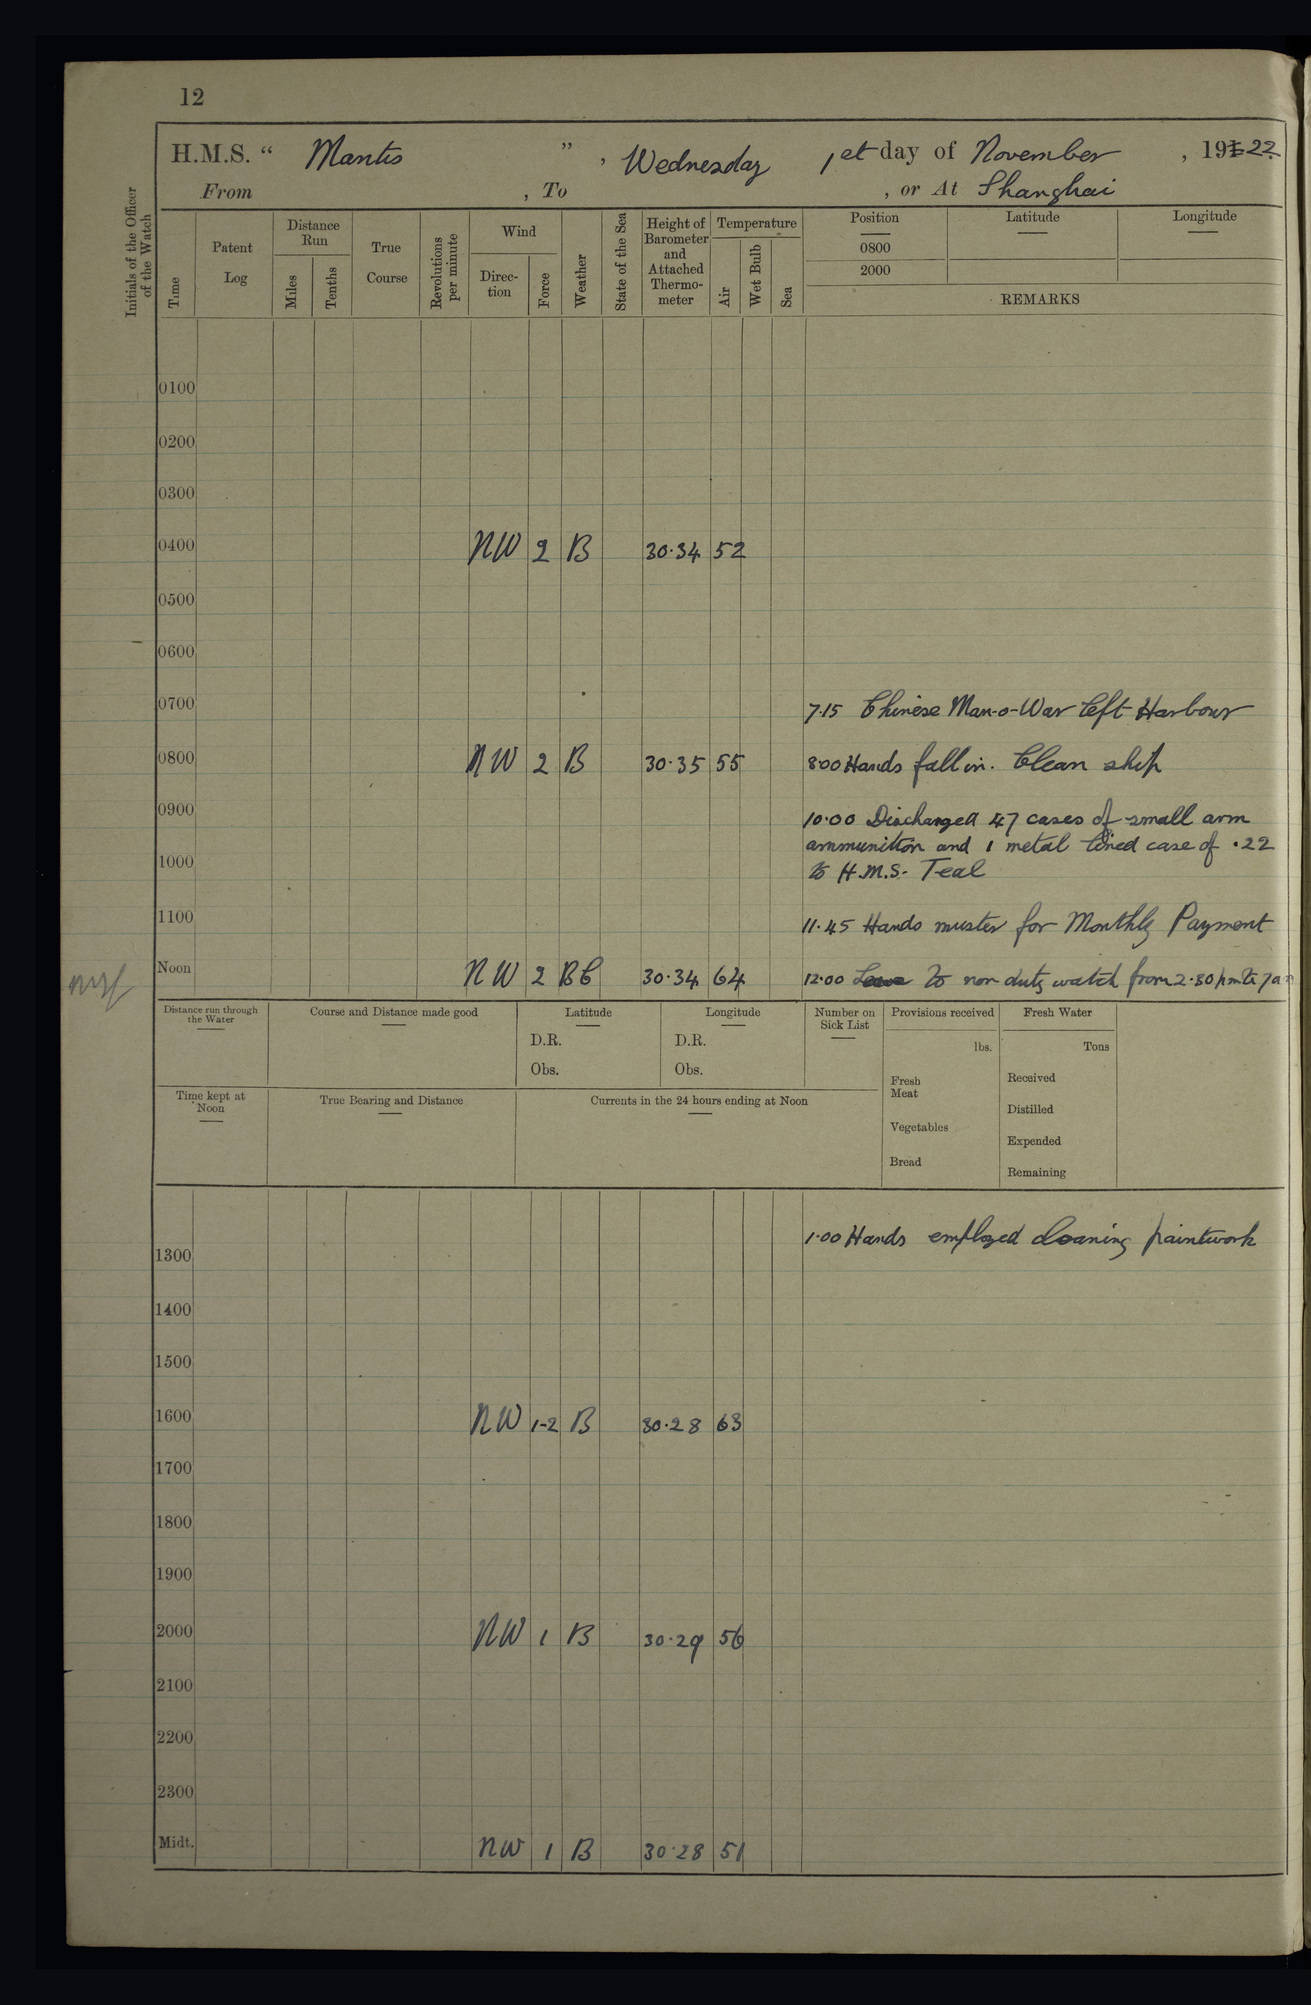 12
H.M.S. “ Mantis ” , Wednesday 1st day of November , 1922
From , To , or At Shanghai
Initials of the Officer of the Watch
Time
Patent Log
Distance Run
Miles
Tenths
True Course
Revolutions per minute
Wind
Direc-tion
Force
Weather
State of the Sea
Height of Barometer and Attached Thermo-meter
Temperature
Air
Wet Bulb
Sea
Position
Latitude
Longitude
0800
2000
REMARKS
0100
0200
0300
0400 NW 2 B 30.34 52
0500
0600
0700 7.15 Chinese Man-o-War left Harbour
0800 NW 2 B 30.35 55 8.00 Hands fall in. Clean ship
0900 10.00 Discharged 47 cases of small arm
ammunition and 1 metal lined case of .22
1000 to H.M.S. Teal
1100 11.45 Hands muster for Monthly Payment
Noon NW 2 BC 30.34 64 12.00 Leave to non duty watch from 2.30 pm to 7 am
Distance run through the Water
Course and Distance made good
Latitude
D.R.
Obs.
Longitude
D.R.
Obs.
Number on Sick List
Provisions received
lbs.
Fresh Meat
Vegetables
Bread
Fresh Water
Tons
Received
Distilled
Expended
Remaining
Time kept at Noon
True Bearing and Distance
Currents in the 24 hours ending at Noon
1.00 Hands employed cleaning paintwork
1300
1400
1500
1600 NW 1-2 B 30.28 63
1700
1800
1900
2000 NW 1 B 30.29 56
2100
2200
2300
Midt. NW 1 B 30.28 51